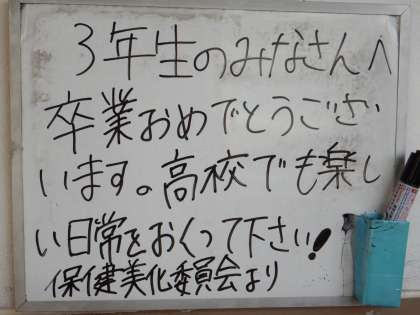 3年生のみなさんへ
卒業おめでとうござい
います。高校でも楽し
い日常をおくって下さい!
保健美化委員会より